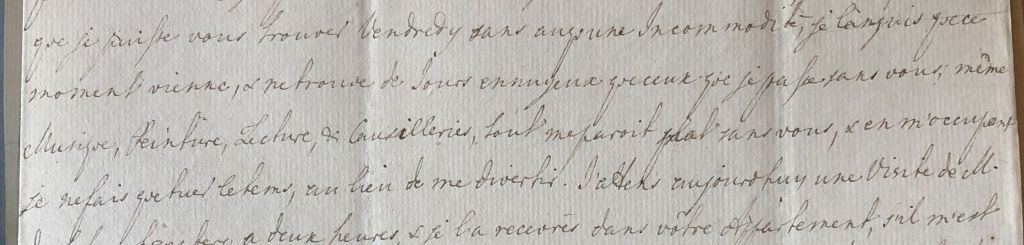 que je puisse vous trouver Vendredy sans aucune Incommodité, je languis que ce
moment vienne, & ne trouve de Jours ennuyeux que ceux que je passe sans vous; même
Musique, Peinture, Lecture, & Causilleries, tout me paroit plat sans vous, & en m'occupant
je ne fais que tuer le tems, au lieu de me divertir. J'attens aujourdhuy une Visite de M.
a deux heures, & je la recevrès dans vôtre Appartement, s'il m'est